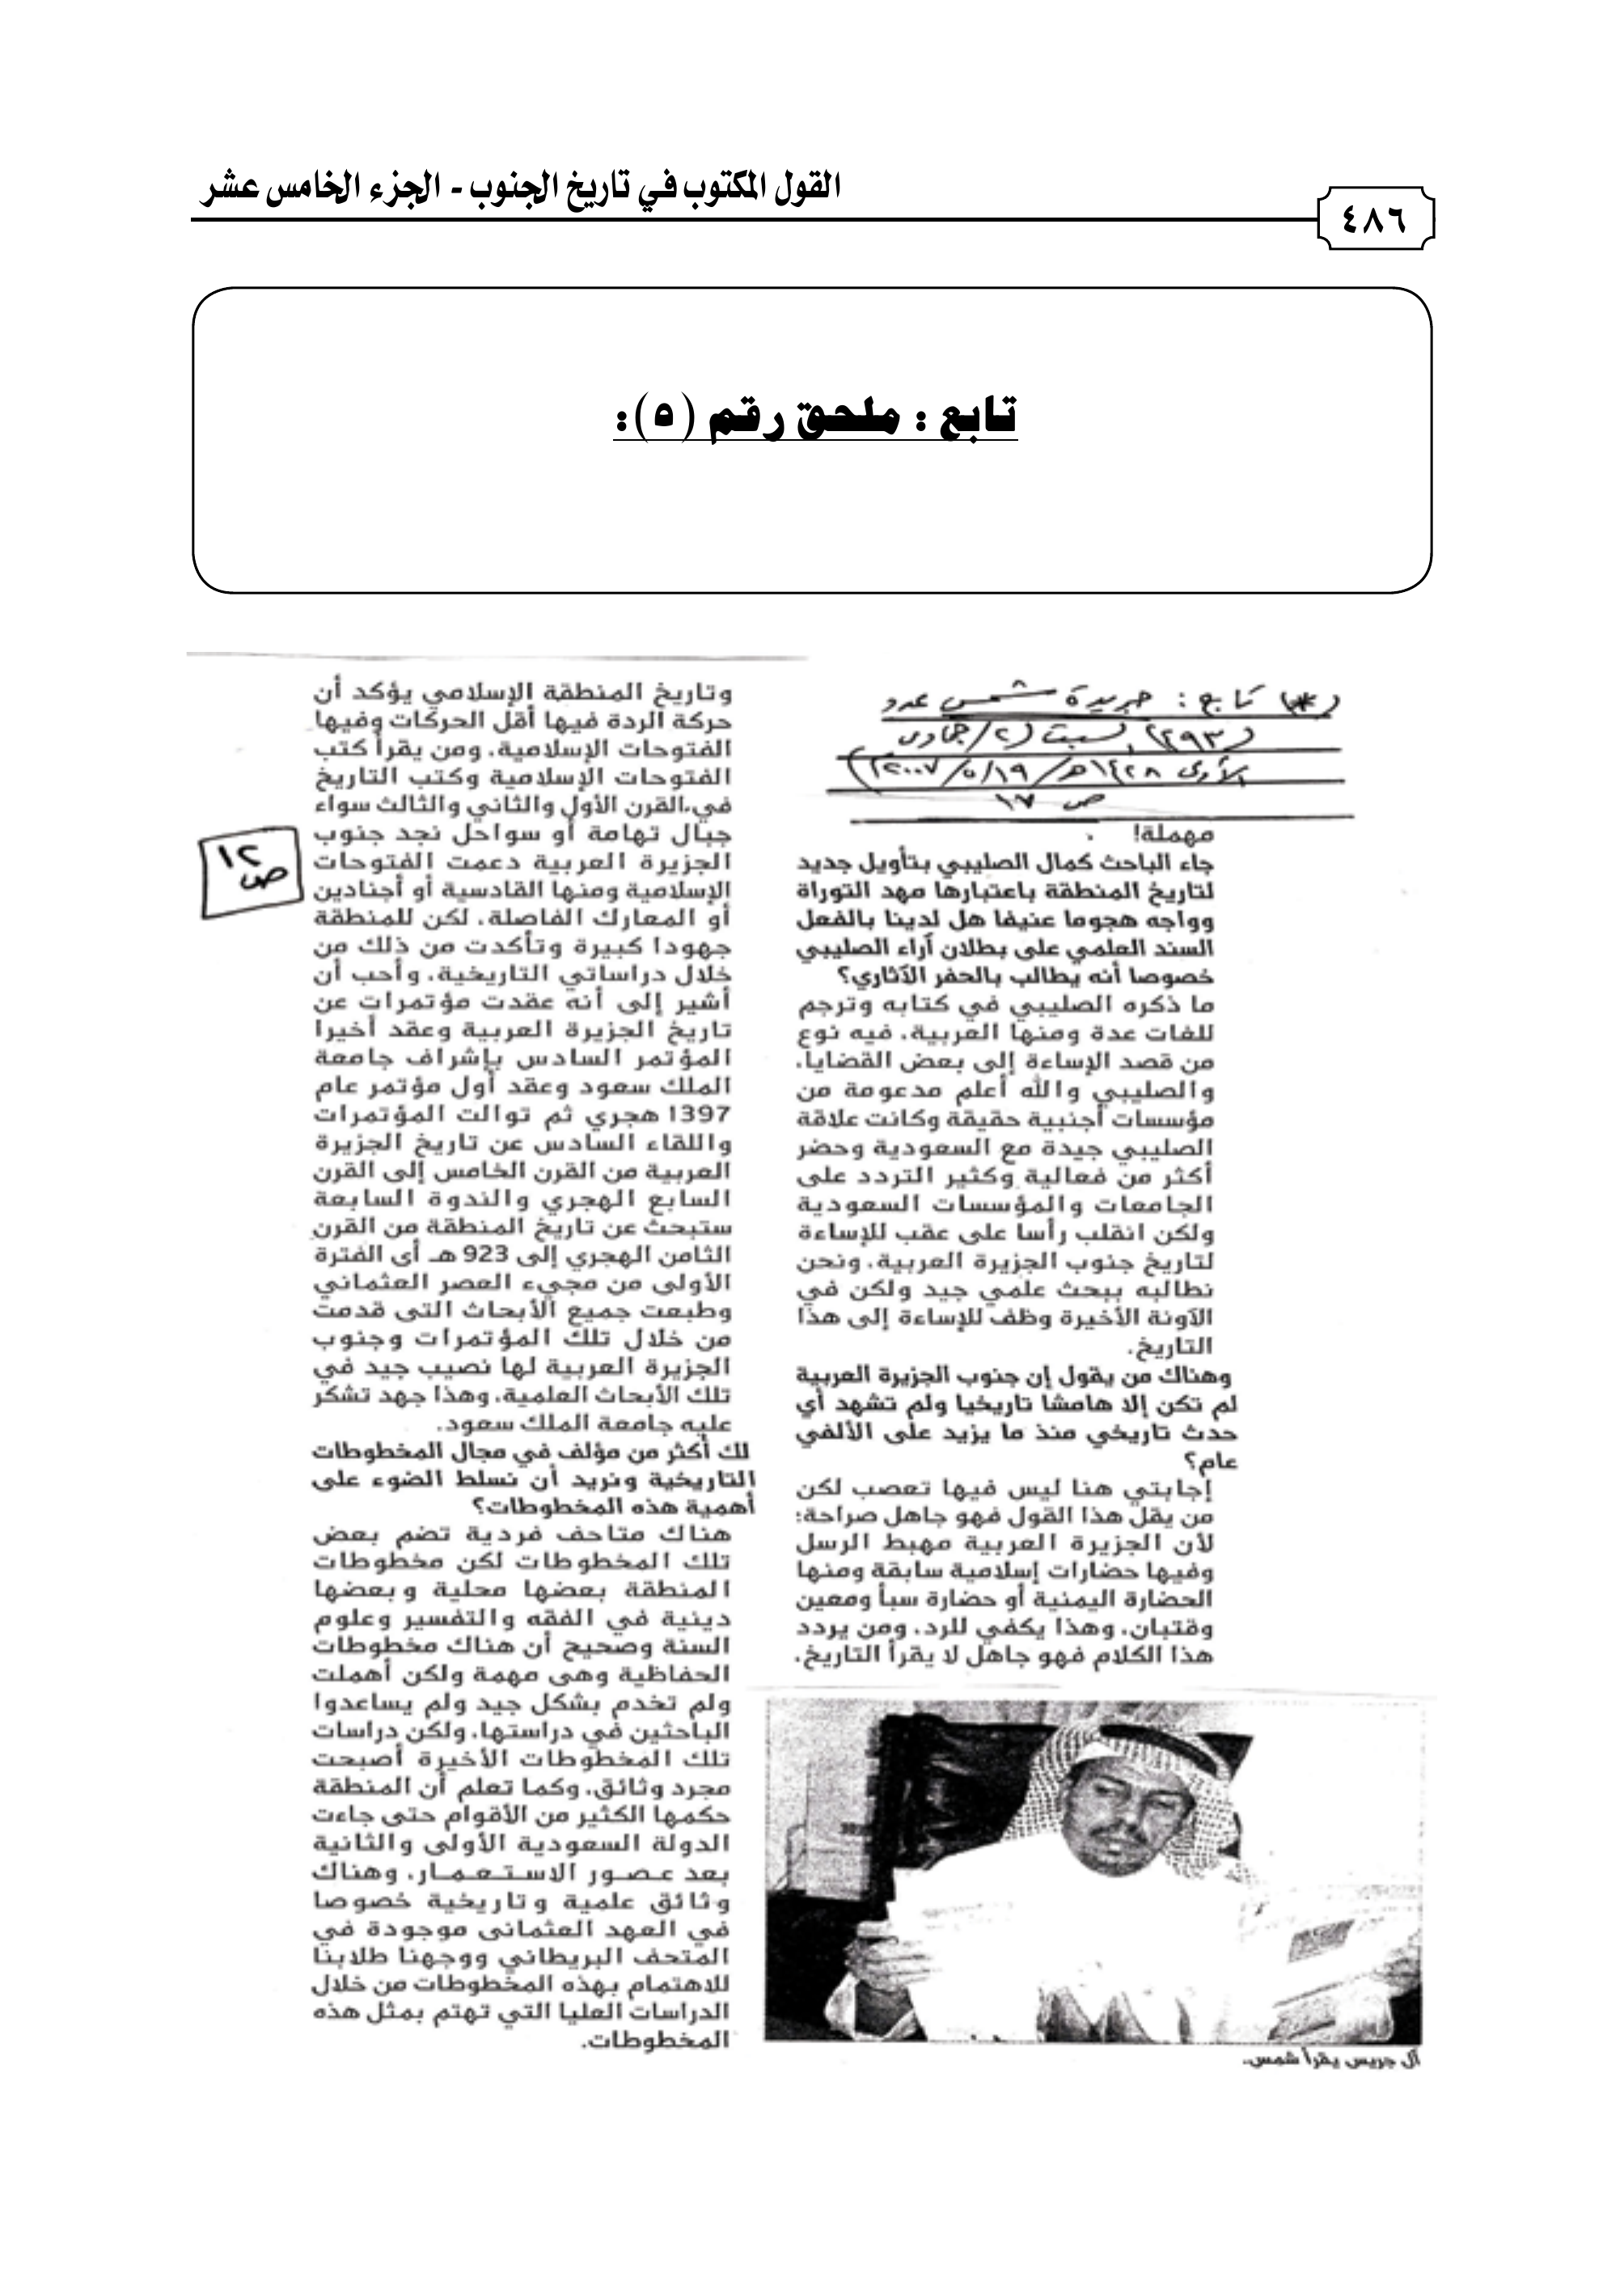 القول المكتوب في تاريخ الجنوب - الجزء الخامس عشر
٤٨٦
تابع : ملحق رقم (٥):
(*) تابع : جريدة شمس عدد
(٢٩٣)، السبت (٢/جمادى
الأولى ١٤٢٨هـ/ ١٩/٥/٢٠٠٧م)
ص ١٧
مهملة!
جاء الباحث كمال الصليبي بتأويل جديد
لتاريخ المنطقة باعتبارها مهد التوراة
وواجه هجوما عنيفا هل لدينا بالفعل
السند العلمي على بطلان آراء الصليبي
خصوصا أنه يطالب بالحفر الآثاري؟
ما ذكره الصليبي في كتابه وترجم
للغات عدة ومنها العربية، فيه نوع
من قصد الإساءة إلى بعض القضايا،
والصليبي والله أعلم مدعومة من
مؤسسات أجنبية حقيقة وكانت علاقة
الصليبي جيدة مع السعودية وحضر
أكثر من فعالية وكثير التردد على
الجامعات والمؤسسات السعودية
ولكن انقلب رأسا على عقب للإساءة
لتاريخ جنوب الجزيرة العربية، ونحن
نطالبه ببحث علمي جيد ولكن في
الآونة الأخيرة وظف للإساءة إلى هذا
التاريخ.
وهناك من يقول إن جنوب الجزيرة العربية
لم تكن إلا هامشا تاريخيا ولم تشهد أي
حدث تاريخي منذ ما يزيد على الألفي
عام؟
إجابتي هنا ليس فيها تعصب لكن
من يقل هذا القول فهو جاهل صراحة؛
لأن الجزيرة العربية مهبط الرسل
وفيها حضارات إسلامية سابقة ومنها
الحضارة اليمنية أو حضارة سبأ ومعين
وقتبان، وهذا يكفي للرد، ومن يردد
هذا الكلام فهو جاهل لا يقرأ التاريخ.
آل جريس يقرأ شمس.
وتاريخ المنطقة الإسلامي يؤكد أن
حركة الردة فيها أقل الحركات وفيها
الفتوحات الإسلامية، ومن يقرأ كتب
الفتوحات الإسلامية وكتب التاريخ
في القرن الأول والثاني والثالث سواء
جبال تهامة أو سواحل نجد جنوب
الجزيرة العربية دعمت الفتوحات
الإسلامية ومنها القادسية أو أجنادين
أو المعارك الفاصلة، لكن للمنطقة
جهودا كبيرة وتأكدت من ذلك من
خلال دراساتي التاريخية، وأحب أن
أشير إلى أنه عقدت مؤتمرات عن
تاريخ الجزيرة العربية وعقد أخيرا
المؤتمر السادس بإشراف جامعة
الملك سعود وعقد أول مؤتمر عام
1397 هجري ثم توالت المؤتمرات
واللقاء السادس عن تاريخ الجزيرة
العربية من القرن الخامس إلى القرن
السابع الهجري والندوة السابعة
ستبحث عن تاريخ المنطقة من القرن
الثامن الهجري إلى 923 هـ أى الفترة
الأولى من مجيء العصر العثماني
وطبعت جميع الأبحاث التى قدمت
من خلال تلك المؤتمرات وجنوب
الجزيرة العربية لها نصيب جيد في
تلك الأبحاث العلمية، وهذا جهد تشكر
عليه جامعة الملك سعود.
لك أكثر من مؤلف في مجال المخطوطات
التاريخية ونريد أن نسلط الضوء على
أهمية هذه المخطوطات؟
هناك متاحف فردية تضم بعض
تلك المخطوطات لكن مخطوطات
المنطقة بعضها محلية وبعضها
دينية في الفقه والتفسير وعلوم
السنة وصحيح أن هناك مخطوطات
الحفاظية وهى مهمة ولكن أهملت
ولم تخدم بشكل جيد ولم يساعدوا
الباحثين في دراستها، ولكن دراسات
تلك المخطوطات الأخيرة أصبحت
مجرد وثائق، وكما تعلم أن المنطقة
حكمها الكثير من الأقوام حتى جاءت
الدولة السعودية الأولى والثانية
بعد عصور الاستعمار، وهناك
وثائق علمية وتاريخية خصوصا
في العهد العثمانى موجودة في
المتحف البريطاني ووجهنا طلابنا
للاهتمام بهذه المخطوطات من خلال
الدراسات العليا التي تهتم بمثل هذه
المخطوطات.
ص ١٢